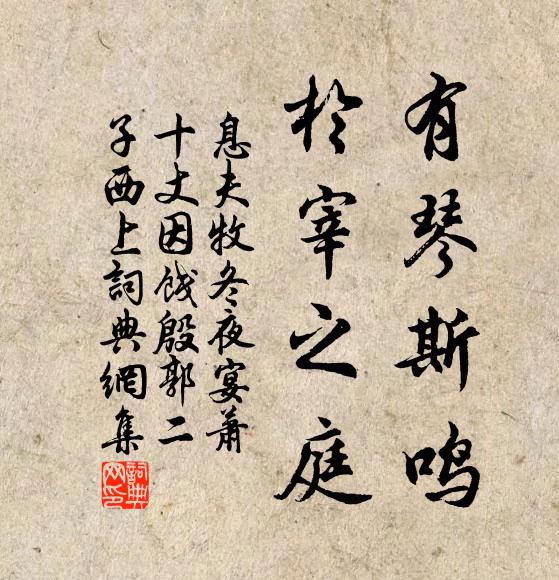 有琴斯鸣
於宰之庭
息夫牧冬夜宴萧
十丈因饯殷郭二
子西上詞典網集
詞典
网印